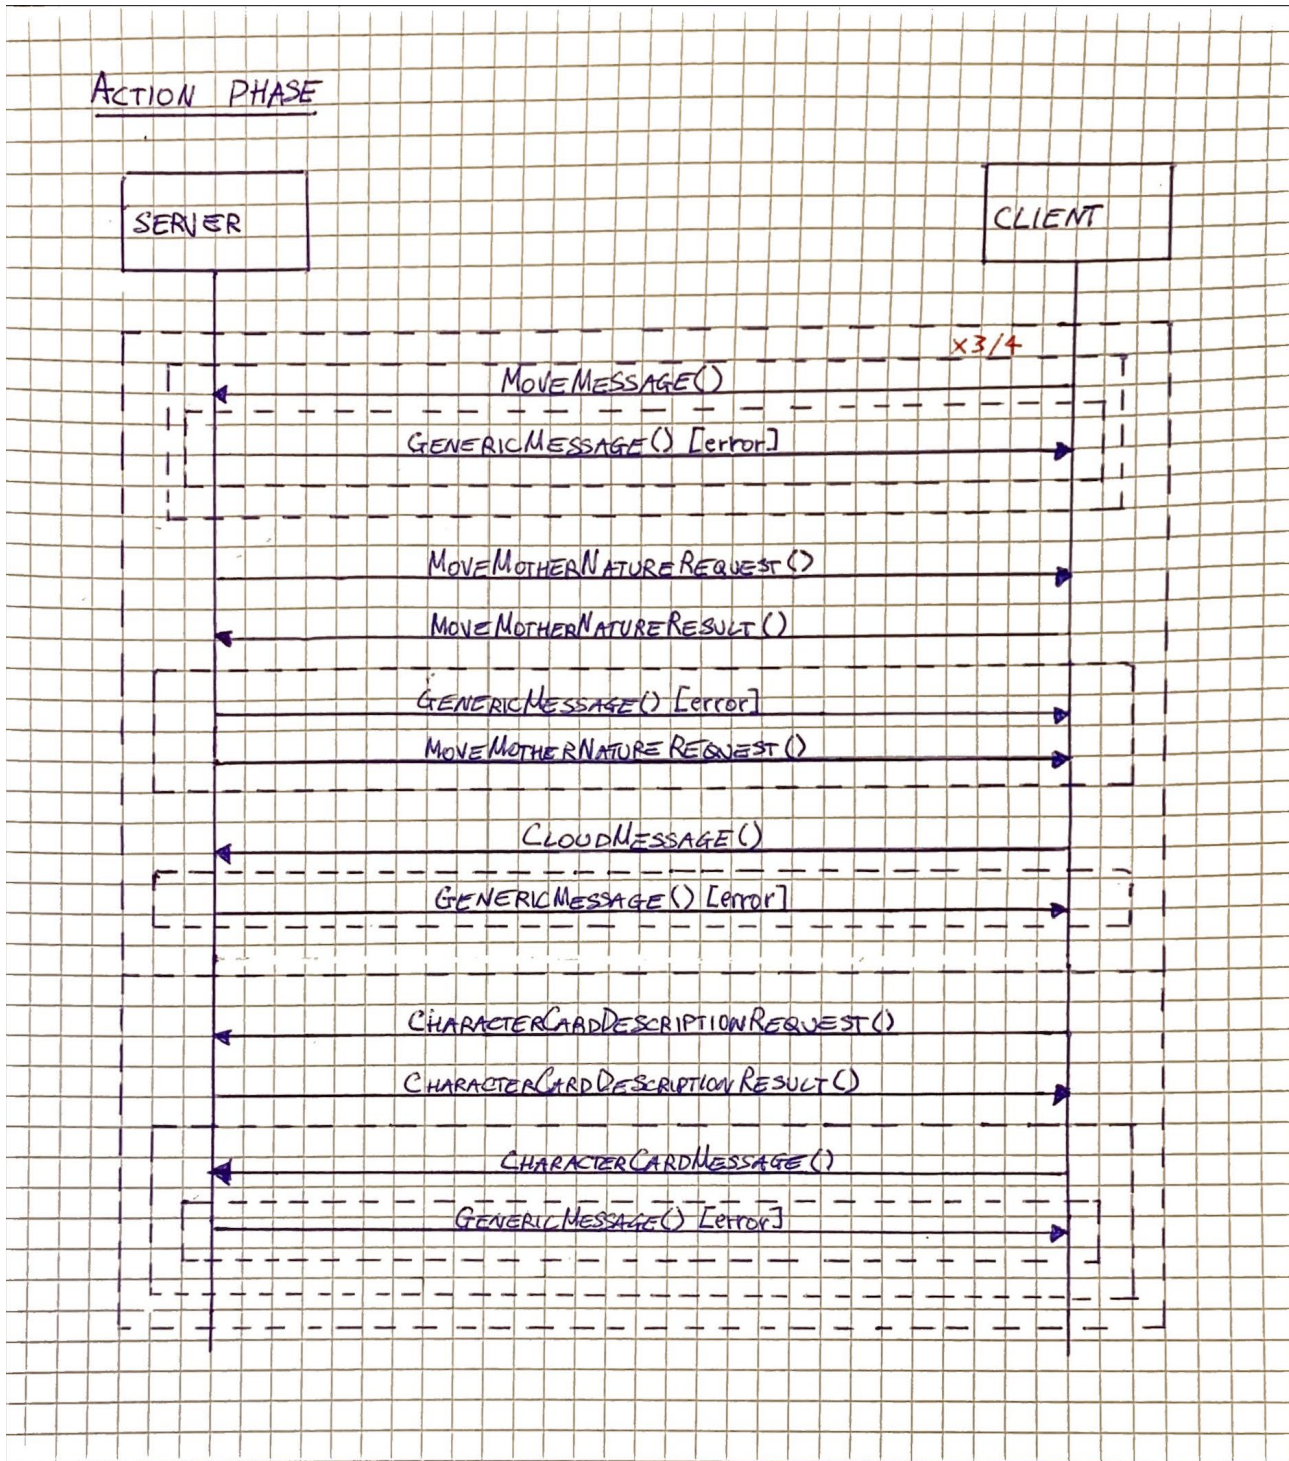 ACTION PHASE
SERVER
CLIENT
x3/4
MOVEMESSAGE()
GENERICMESSAGE() [error]
MOVEMOTHERNATUREREQUEST()
MOVEMOTHERNATURERESULT()
GENERICMESSAGE() [error]
MOVEMOTHERNATUREREQUEST()
CLOUDMESSAGE()
GENERICMESSAGE() [error]
CHARACTERCARDDESCRIPTIONREQUEST()
CHARACTERCARDDESCRIPTIONRESULT()
CHARACTERCARDMESSAGE()
GENERICMESSAGE() [error]